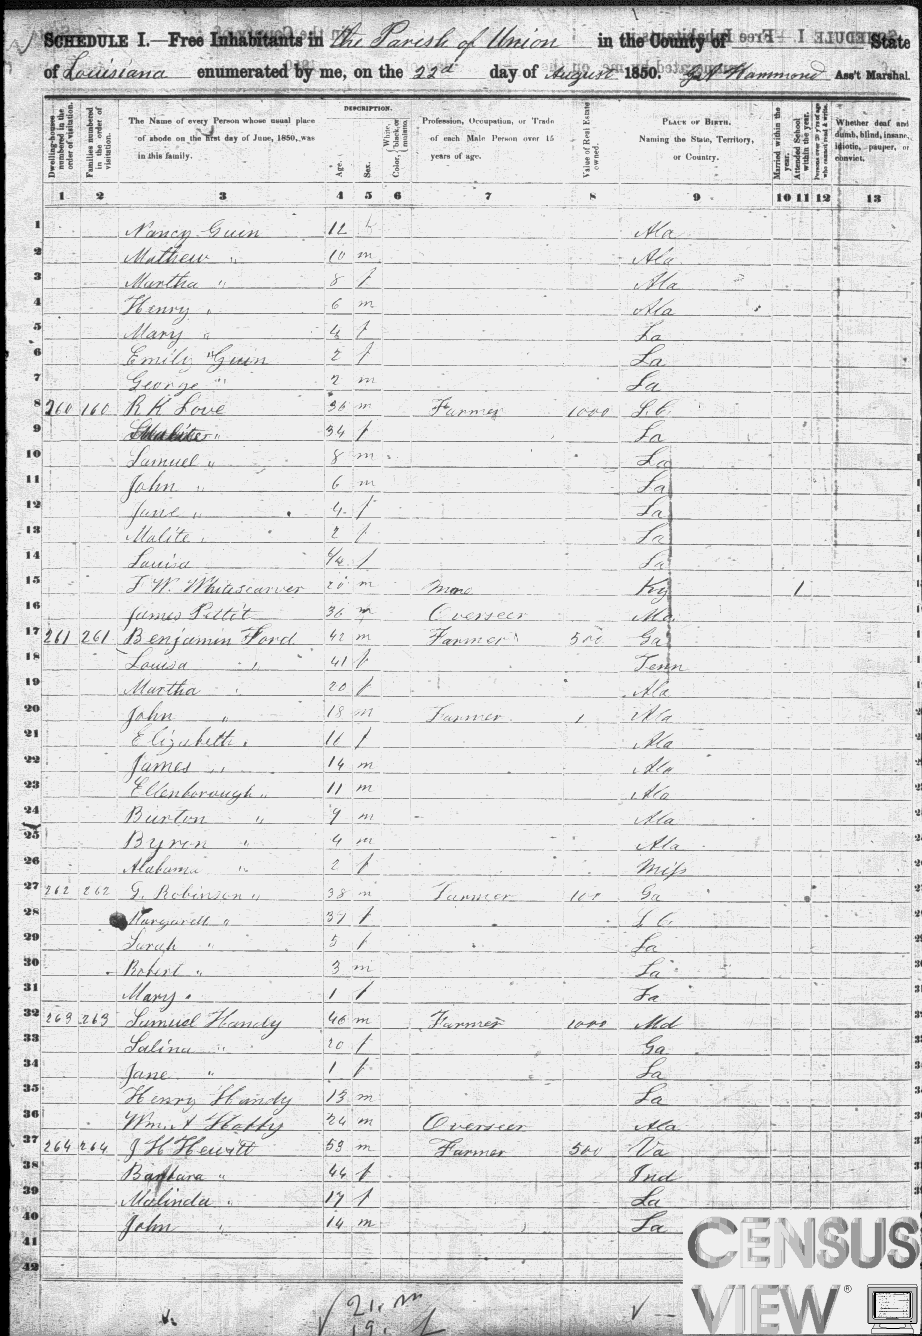 SCHEDULE I.—Free Inhabitants in the Parish of Union in the County of State
of Louisiana enumerated by me, on the 22d day of August 1850. Hammond Ass't Marshal.
Dwelling-houses numbered in the order of visitation.
Families numbered in the order of visitation.
The Name of every Person whose usual place of abode on the first day of June, 1850, was in this family.
DESCRIPTION.
Age.
Sex.
Color, White, black, or mulatto.
Profession, Occupation, or Trade of each Male Person over 15 years of age.
Value of Real Estate owned.
PLACE OF BIRTH. Naming the State, Territory, or Country.
Married within the year.
Attended School within the year.
Persons over 20 y'rs of age who cannot read & write.
Whether deaf and dumb, blind, insane, idiotic, pauper, or convict.
1 2 3 4 5 6 7 8 9 10 11 12 13
1 Nancy Guin 12 f Ala
2 Mathew " 10 m Ala
3 Martha " 8 f Ala
4 Henry " 6 m Ala
5 Mary " 4 f La
6 Emily Guin 2 f La
7 George " 2 m La
8 260 160 R K Love 36 m Farmer 1000 S.C.
9 " 34 f La
10 Samuel " 8 m La
11 John " 6 m La
12 Jane " 4 f La
13 Malite " 2 f La
14 Louisa f La
15 W. Whitescarver 20 m None Ky 1
16 James Pettit 36 m Overseer
17 261 261 Benjamin Ford 42 m Farmer 500 Ga
18 Louisa " 41 f Tenn
19 Martha " 20 f Ala
20 John " 18 m Farmer Ala
21 Elizabeth " 16 f Ala
22 James " 14 m Ala
23 Ellenborough " 11 m Ala
24 Burton " 9 m Ala
25 Byron " 4 m Ala
26 Alabama " 2 f Miss
27 262 262 G. Robinson " 38 m Farmer 100 Ga
28 Margarett " 37 f S.C.
29 Sarah " 5 f La
30 Robert " 3 m La
31 Mary " 1 f La
32 263 263 Samuel Handy 46 m Farmer 1000 Md
33 Salina " 20 f Ga
34 Jane " 1 f La
35 Henry Handy 13 m La
36 Wm. A 24 m Overseer Ala
37 264 264 J H Hewitt 53 m Farmer 500 Va
38 Barbara " 44 f Ind
39 Malinda " 17 f La
40 John " 14 m La
41
42
21. m
19. f
CENSUS
VIEW®